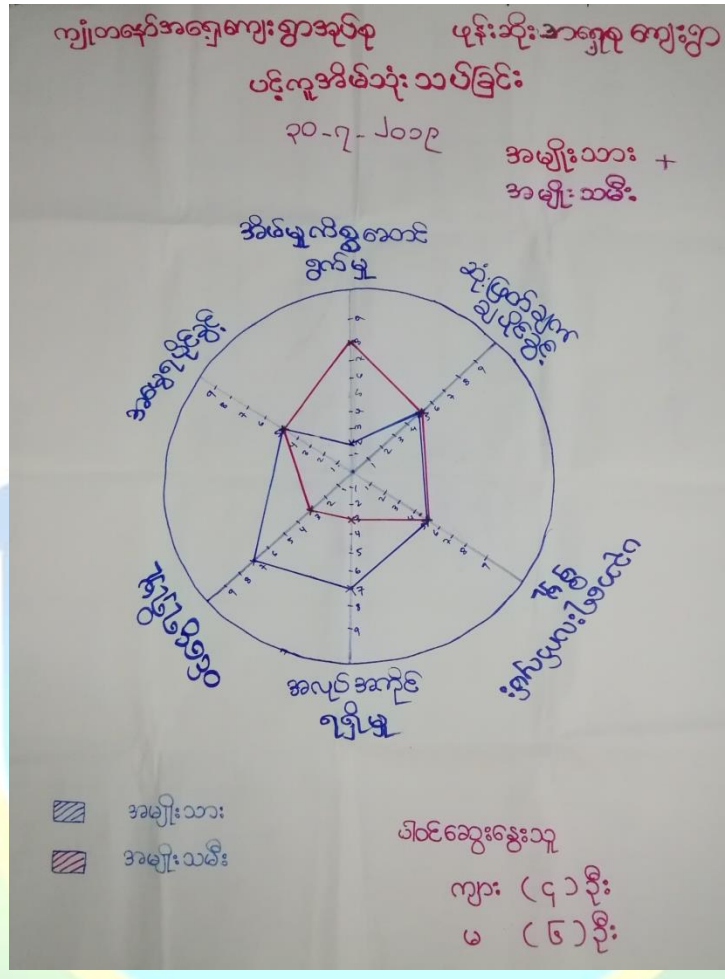 ကျုံတနော်အရှေ့ကျေးရွာအုပ်စု ဖုန်းဆိုးအရှေ့စု ကျေးရွာ
ပင့်ကူအိမ်သုံးသပ်ခြင်း
၃၀-၇-၂၀၁၉
အမျိုးသား +
အမျိုးသမီး
အိမ်မှုကိစ္စဆောင်
ရွက်မှု
ဆုံးဖြတ်ချက်
ချပိုင်ခွင့်
အမွေရပိုင်ခွင့်
အလုပ်အကိုင်
ရရှိမှု
အမျိုးသား
အမျိုးသမီး
ပါဝင်ဆွေးနွေးသူ
ကျား (၄) ဦး
မ (၆) ဦး